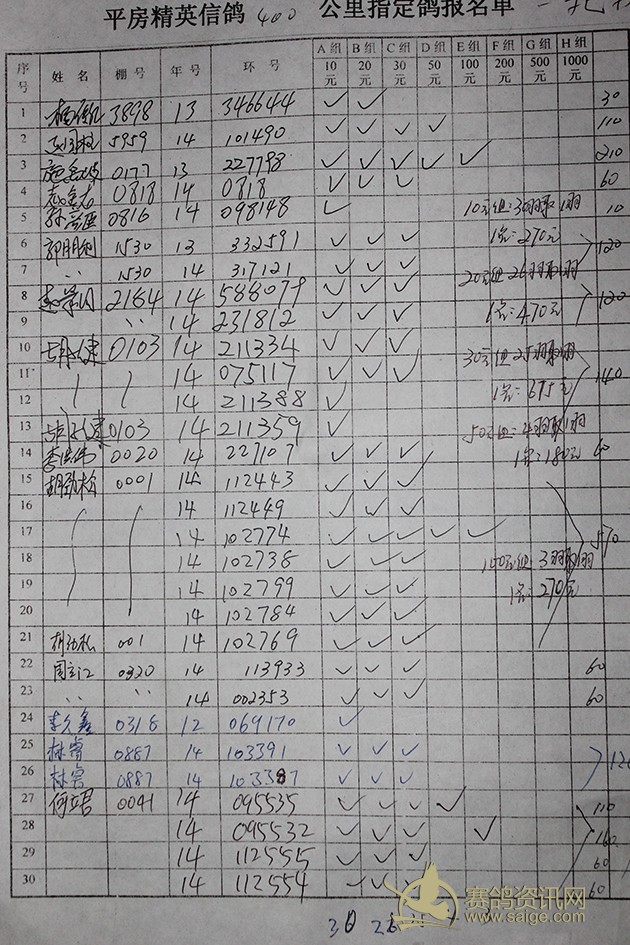 平房精英信鸽 400 公里指定鸽报名单
序号 姓名 棚号 年号 环号 A组10元 B组20元 C组30元 D组50元 E组100元 F组200元 G组500元 H组1000元
1 3898 13 346644 ✓ ✓ 30
2 5959 14 101490 ✓ ✓ ✓ ✓ 110
3 0177 13 227798 ✓ ✓ ✓ ✓ ✓ 210
4 0818 14 0818 ✓ ✓ ✓ 60
5 0816 14 098148 ✓ 10元组:30羽取1羽 10
6 1530 13 332591 ✓ ✓ ✓ 1名:270元
7 〃 1530 14 317121 ✓ ✓ ✓ 20元组26羽取1羽 120
8 2184 14 588079 ✓ ✓ ✓
9 〃 14 231812 ✓ ✓ ✓ 1名:470元 120
10 0103 14 211334 ✓ ✓ ✓ 30元组25羽取1羽
11 14 075117 ✓ ✓ ✓ 140
12 14 211388 ✓ 1名:675元
13 0103 14 211359 ✓ 50元组:4羽取1羽
14 李佳伟 0020 14 227107 ✓ ✓ ✓ 1名:180元 60
15 胡劲松 0001 14 112443 ✓ ✓ ✓
16 14 112449 ✓ ✓ ✓
17 14 102774 ✓ ✓ ✓ ✓ ✓ 570
18 14 102738 ✓ ✓ ✓ 100元组 3羽取1羽
19 14 102799 ✓ ✓ ✓ 1名:270元
20 14 102784 ✓ ✓ ✓
21 胡劲松 001 14 102769 ✓ ✓ ✓
22 周立江 0320 14 113933 ✓ ✓ ✓ 60
23 〃 〃 14 002353 ✓ ✓ ✓ 60
24 李久鑫 0318 12 069170 ✓
25 林睿 0887 14 103391 ✓ ✓ ✓
26 林睿 0887 14 103387 ✓ ✓ ✓
27 何立君 0041 14 095535 ✓ ✓ ✓ ✓ 110
28 14 095532 ✓ ✓ ✓ ✓ 160
29 14 112555 ✓ ✓ ✓ 60
30 14 112554 ✓ ✓ ✓ 60
30 26 25
赛鸽资讯网
www.saige.com